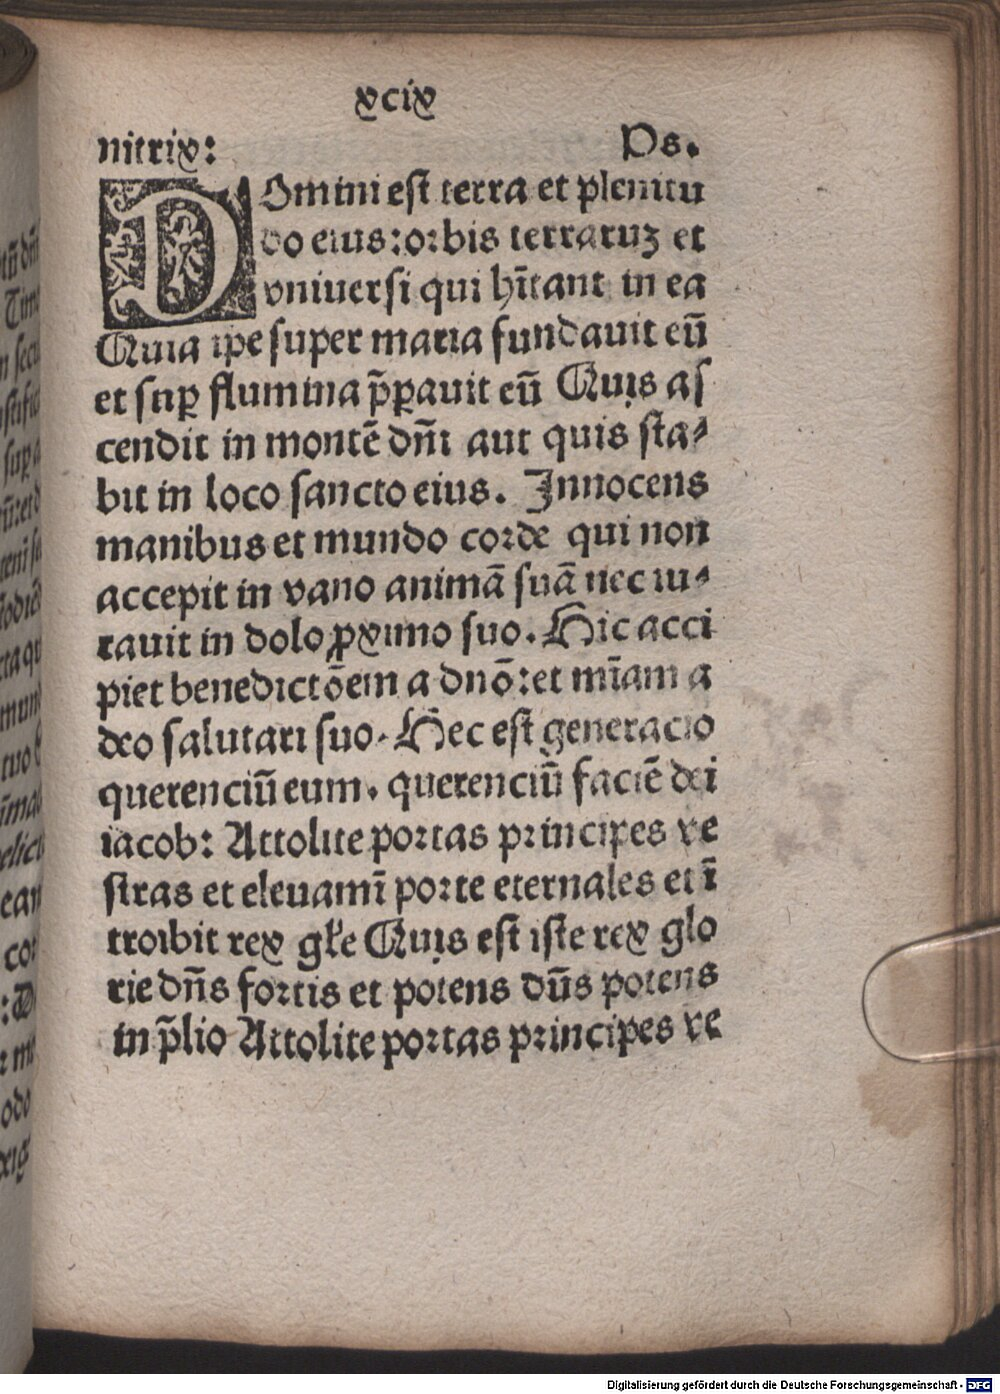 xcix
nitrix: Ps.
Domini est terra et plenitu
do eius: orbis terraruʒ et
vniuersi qui hītant in ea
Quia ipe super maria fundauit eū
et suꝑ flumina p̄ꝑauit eū Quis as
cendit in montē dn̄i aut quis sta⸗
bit in loco sancto eius. Innocens
manibus et mundo corde qui non
accepit in vano animā suā nec iu⸗
rauit in dolo ꝓximo suo. Hic acci
piet benedictōem a dnō: et mīam a
deo salutari suo. Hec est generacio
querenciū eum. querenciū faciē dei
iacob: Attolite portas principes ve
stras et eleuamī porte eternales et ī
troibit rex gl'e Quis est iste rex glo
rie dn̄s fortis et potens dn̄s potens
in p̄lio Attolite portas principes ve
Digitalisierung gefördert durch die Deutsche Forschungsgemeinschaft - DFG